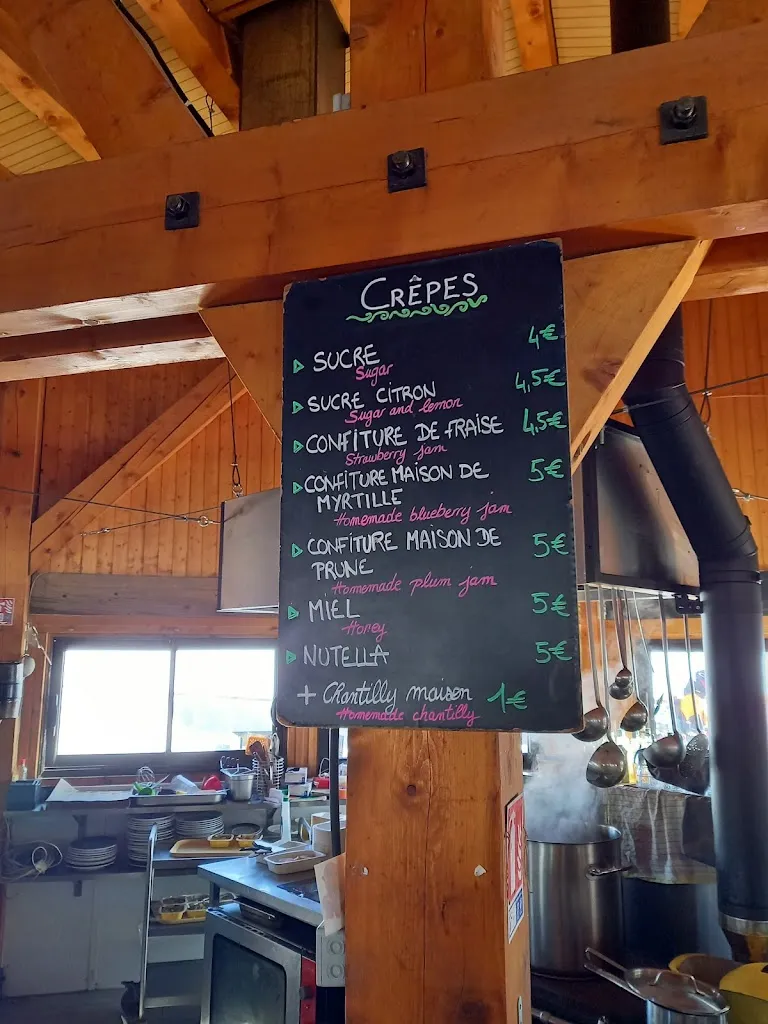 CRÊPES
SUCRE 4€
Sugar
SUCRE CITRON 4,5€
Sugar and lemon
CONFITURE DE FRAISE 4,5€
Strawberry jam
CONFITURE MAISON DE 5€
MYRTILLE
Homemade blueberry jam
CONFITURE MAISON DE 5€
PRUNE
Homemade plum jam
MIEL 5€
Honey
NUTELLA 5€
+ Chantilly maison 1€
Homemade chantilly